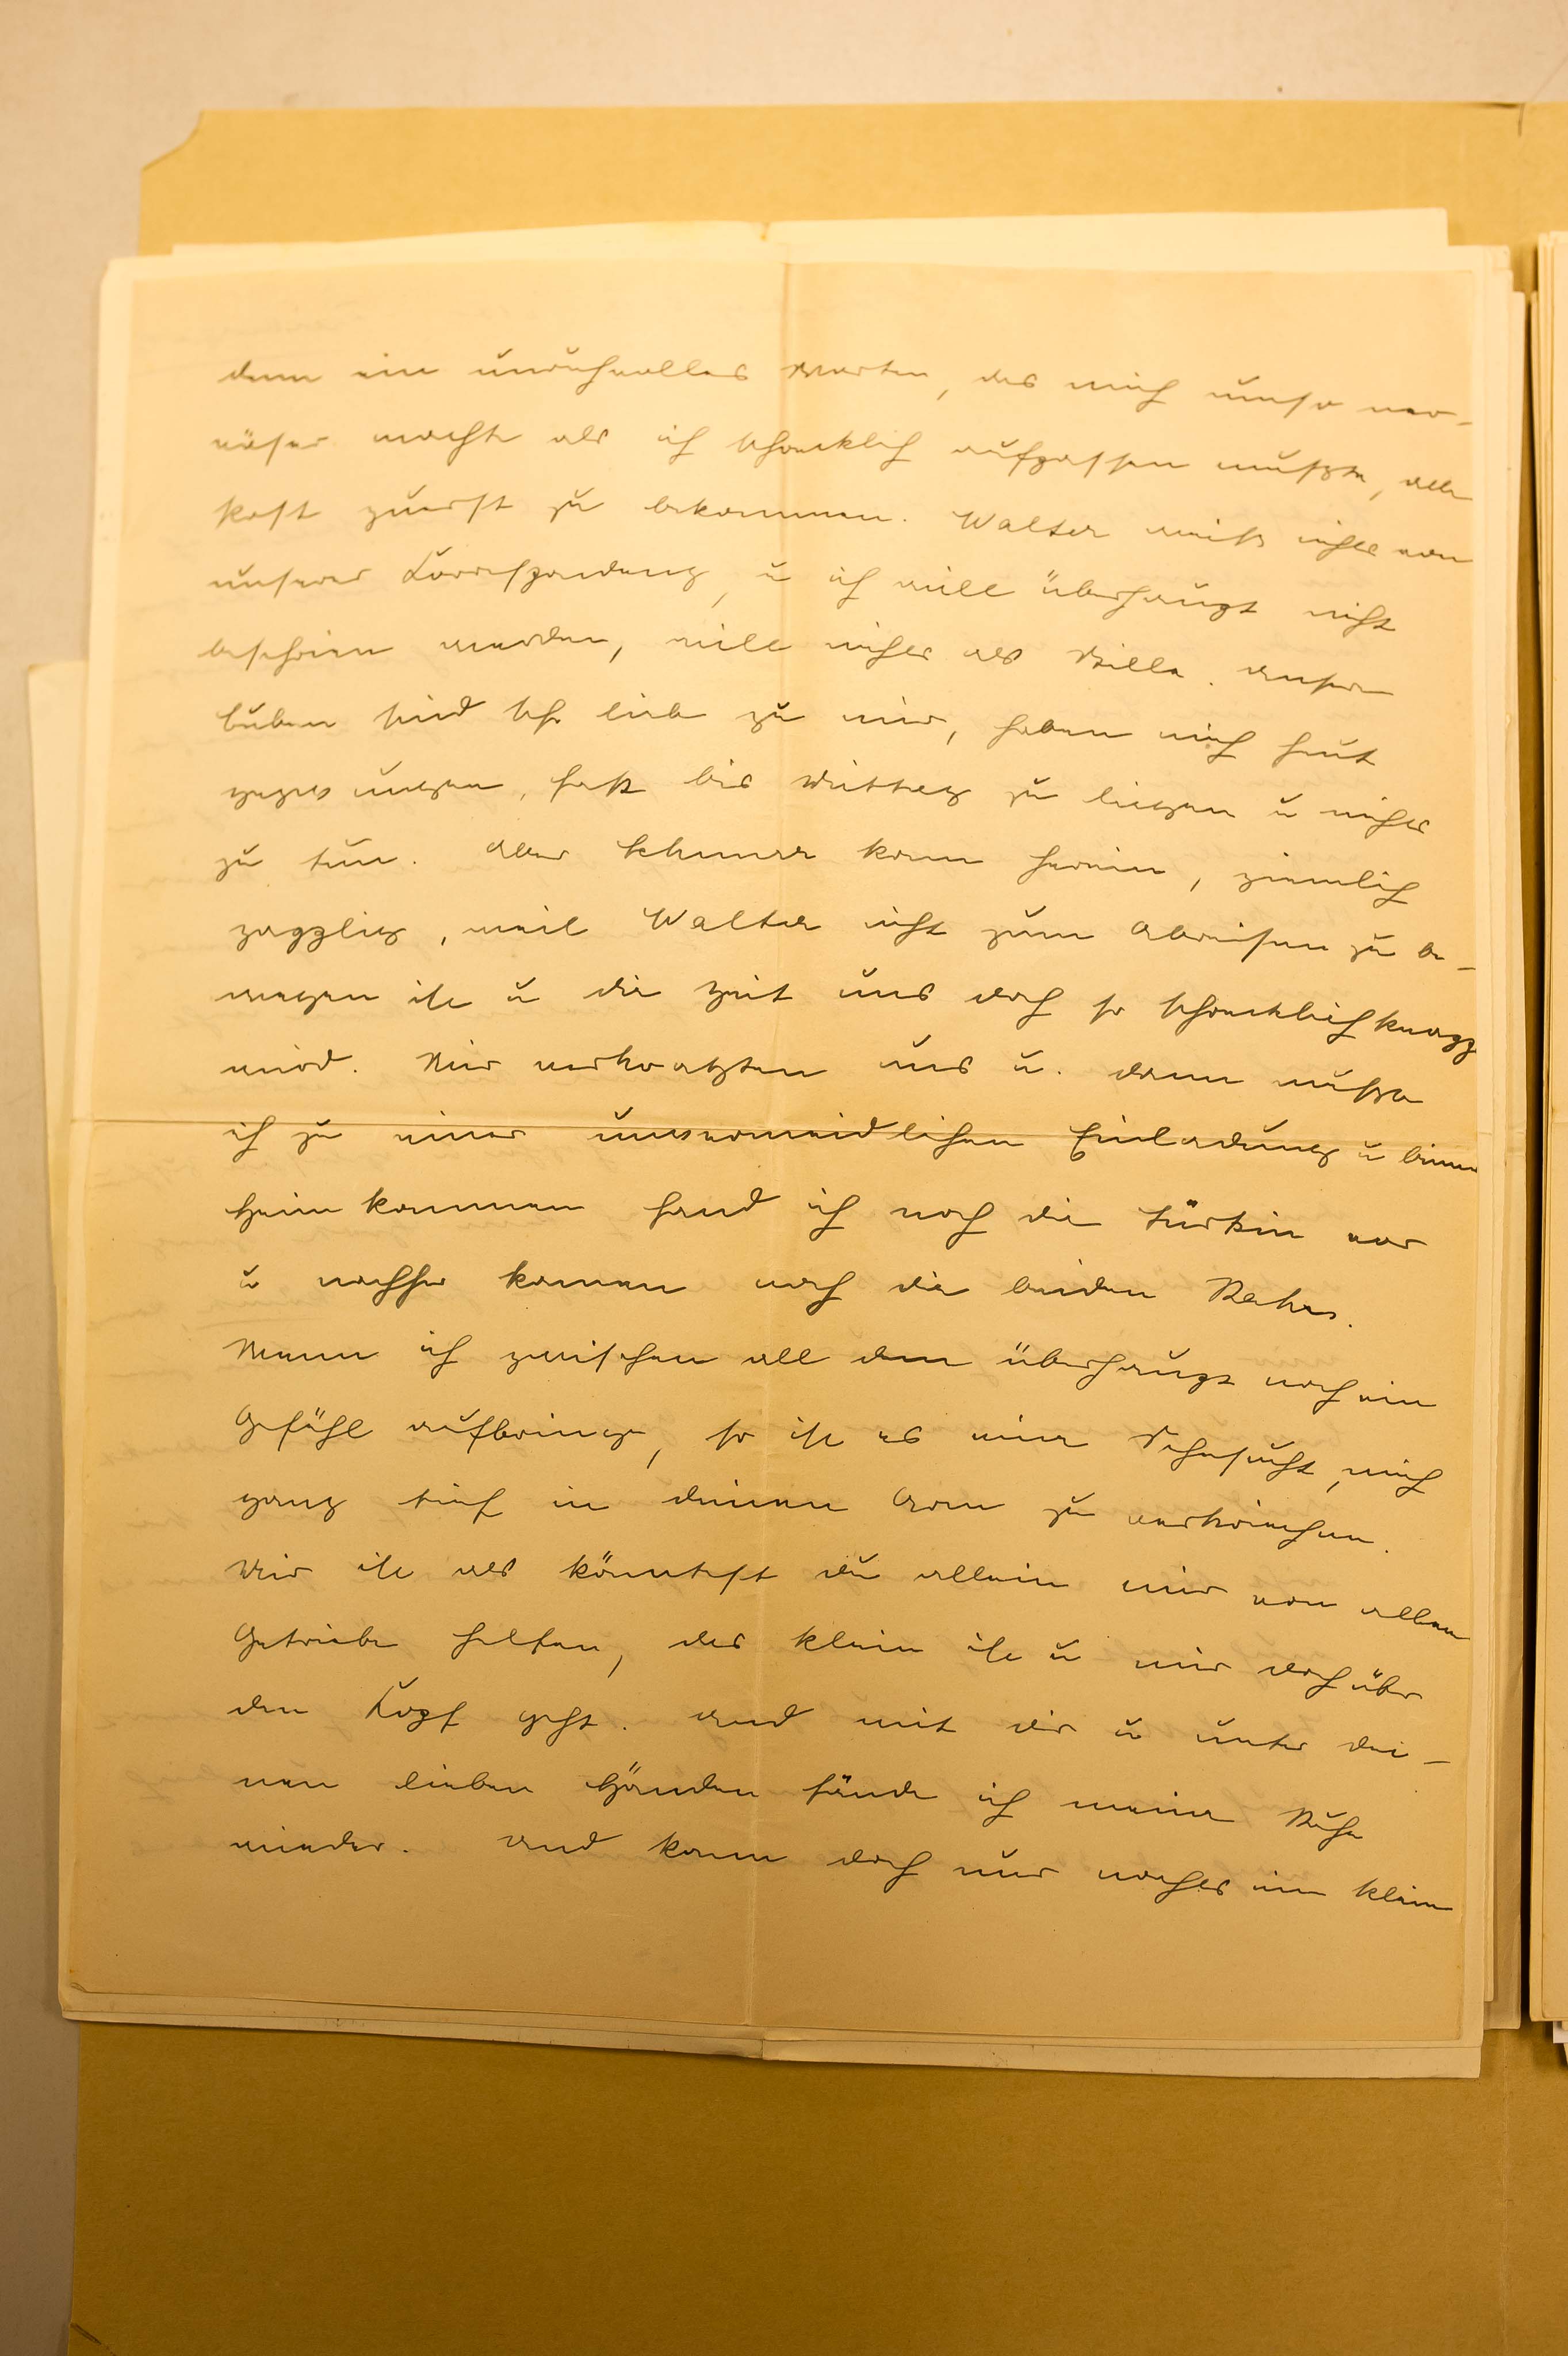 denn ein unruhvolles Warten, das mich umso ner-
vöser machte als ich schrecklich aufpassen musste, alle
Post zuerst zu bekommen. Walter weiss nichts von
unserer Korrespondenz, u ich will überhaupt nicht
beschrien werden, will nichts als Stille. Unsere
buben sind sehr lieb zu mir, haben mich heut
gezwungen, fast bis Mittag zu liegen u nichts
zu tun. Aber kam herein, ziemlich
zapplig, weil Walter nicht zum Abreisen zu be-
wegen ist u die Zeit uns doch so schrecklich knapp
wird. Wir verkrachten uns u. dann musste
ich zu einer unvermeidlichen Einladung u beim
Heimkommen fand ich noch die Türkin vor
u nachher kamen noch die beiden
Wenn ich zwischen all dem überhaupt noch ein
Gefühl aufbringe, so ist es eine Sehnsucht, mich
ganz tief in deinen Arm zu verkriechen.
Mir ist als könntest du allein mir von allem
Getriebe helfen, das klein ist u mir doch über
den Kopf geht. Und mit dir u unter dei-
nen lieben Händen fände ich meine Ruhe
wieder. Und kann doch nur nachts ein klein